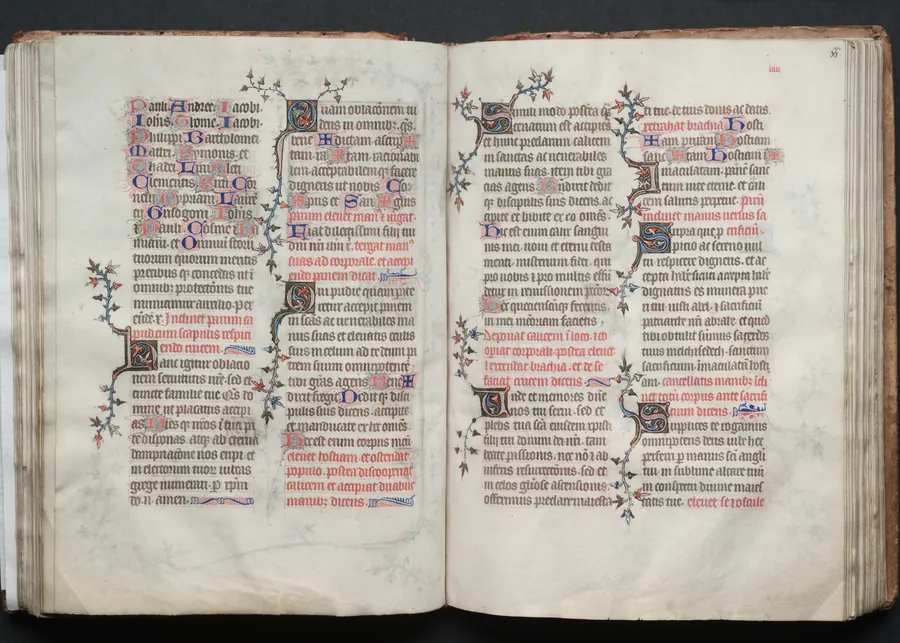 Pauli. Andree. Iacobi.
Iohis. Thome. Iacobi.
Philippi. Bartholomei
Mathei. Symonis. et
Thadei Lini Cleti
Clementis. Sixti. Cor
nelij Cypriani. Laure
tij Grisogoni Iohis.
Pauli. Cosme
miani. et Omniu sctoru
tuorum quorum meritis
precibus q concedas ut i
omnibus protectonis tue
muniamur auxilio. per
eude x Inclinet parum ca
put cum scapulis respici
endo calicem.
anc igitur oblacio
nem seruitutis nre. sed et
cuncte familie tue qs do
mine ut placatus accepi
as Dies q nros i tua pa
te disponas. atq ab eterna
dampnacione nos eripi. et
in electorum tuor iubeas
grege numerari. p xpm
do. n. amen.
Quam oblacionem tu
deus in omnibz. qs.
bene dictam ascrip
tam. ra tam. racionabi
lem. acceptabilemq facere
digneris ut nobis Cor
pus et San guis
parum eleuet man iungat
Fiat dilectissimi filij tui
dni nri ihu x. tergat man
suas ad corporale. et accipi
endo panem dicat.
Qui pridie quam pate
retur accepit panem
in scas ac uenerabiles ma
nus suas et eleuatis oculis
suis in celum ad te deum pa
trem suum omnipotente
tibi gras agens Bene
dixit fregit Dedit q disci
pulis suis dicens. accipite
et manducate ex hc omes.
Hoc est enim corpus meu
eleuet hostiam. et ostendat
populo. postea discooperiat
calicem et accipiat duabus
manibz dicens.
Simili modo postea q
cenatum est accipies
et hunc preclarum calicem
in sanctas ac uenerabiles
manus suas. item tibi gra
cias agens Benedixit dedit
q discipulis suis dicens. ac
cipite et bibite ex eo omes
Hic est enim calix sangui
nis mei. noui et eterni testa
menti. misterium fidei. qui
pro uobis et pro multis effu
detur in remissionem pctor
Hec quociensciq feceritis.
in mei memoriam facietis.
Deponat calicem i loco. et co
opiat corporali. postea eleuet
et extendat brachia. et de se
faciat crucem dicens.
Unde et memores dne
nos tui serui. sed et
plebs tua sca eiusdem xpisti
filij tui domini dei nri. tam
beate passionis. nec no et ab
inferis resurrectonis. sed et
in celos gliose ascensionis.
offerimus preclare maiesta
ti tue. de tuis donis ac datis.
retrahat brachia Hosti
am puram Hostiam
sanctam Hostiam
Immaculatam. panem sanc
tum uite eterne. et cali
cem salutis perpetue. parum
inclinet manus uersus sa
Supra que p crificiu.
pitio ac sereno uul
tu respicere digneris. et ac
cepta habe sicuti accepta habe
dignatus es munera pue
ri tui iusti abel. et sacrificiu
patriarche nri abrahe. et quod
tibi obtulit summus sacerdos
tuus melchisedech. sanctum
sacrificium. imaculata hosti
am. cancellatis manibz. icli
net totu corpus ante sacrifi
cium dicens.
Supplices te rogamus
omnipotens deus iube hec
perferri p manus sci angli
tui in sublime altare tuu
in conspectu diuine maies
tatis tue. eleuet se et osculet